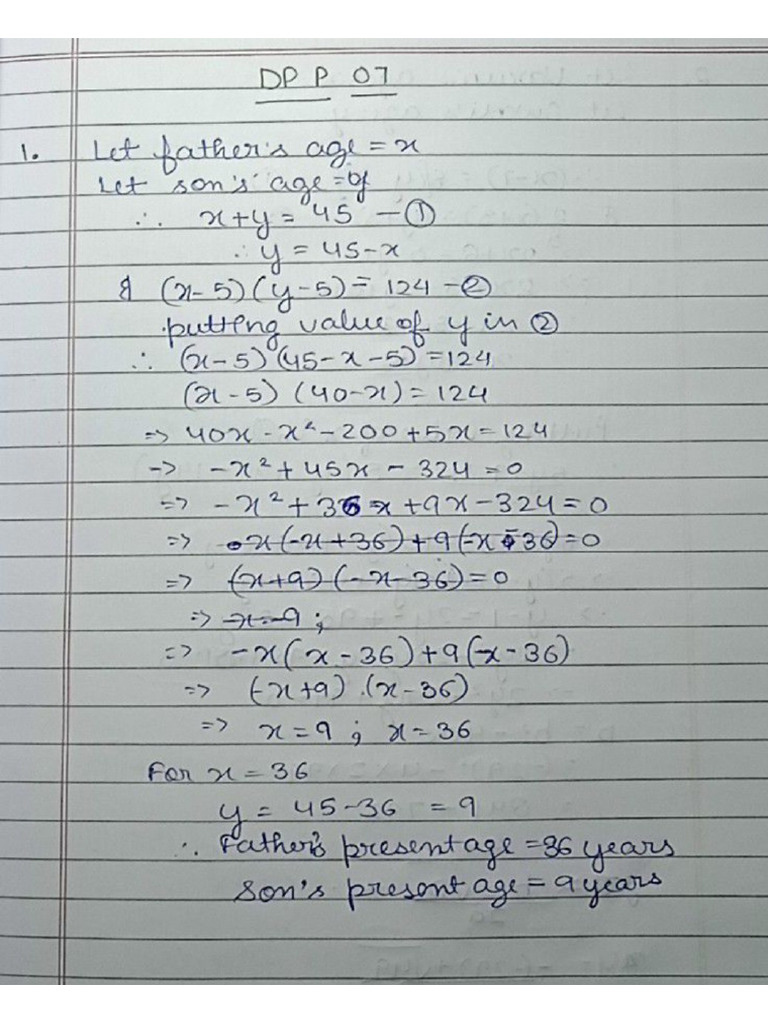 DPP 07
1. Let father's age = x
Let son's age = y
∴ x+y = 45 — ①
∴ y = 45-x
& (x-5)(y-5) = 124 — ②
putting value of y in ②
∴ (x-5)(45-x-5) = 124
(x-5) (40-x) = 124
=> 40x - x² - 200 + 5x = 124
-> -x² + 45x - 324 = 0
=> -x² + 36x + 9x - 324 = 0
=> x(-x+36) + 9(-x-36) = 0
=> (x+9) (-x-36) = 0
=> x=-9 ;
=> -x(x-36) + 9(x-36)
=> (-x+9) . (x-36)
=> x = 9 ; x = 36
For x = 36
y = 45-36 = 9
∴ Father's present age = 36 years
Son's present age = 9 years